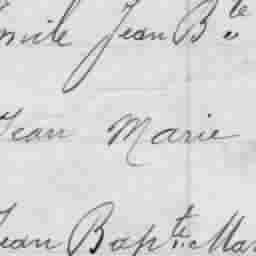 Jean Bte
Jean Marie
Jean Bapte. Mar